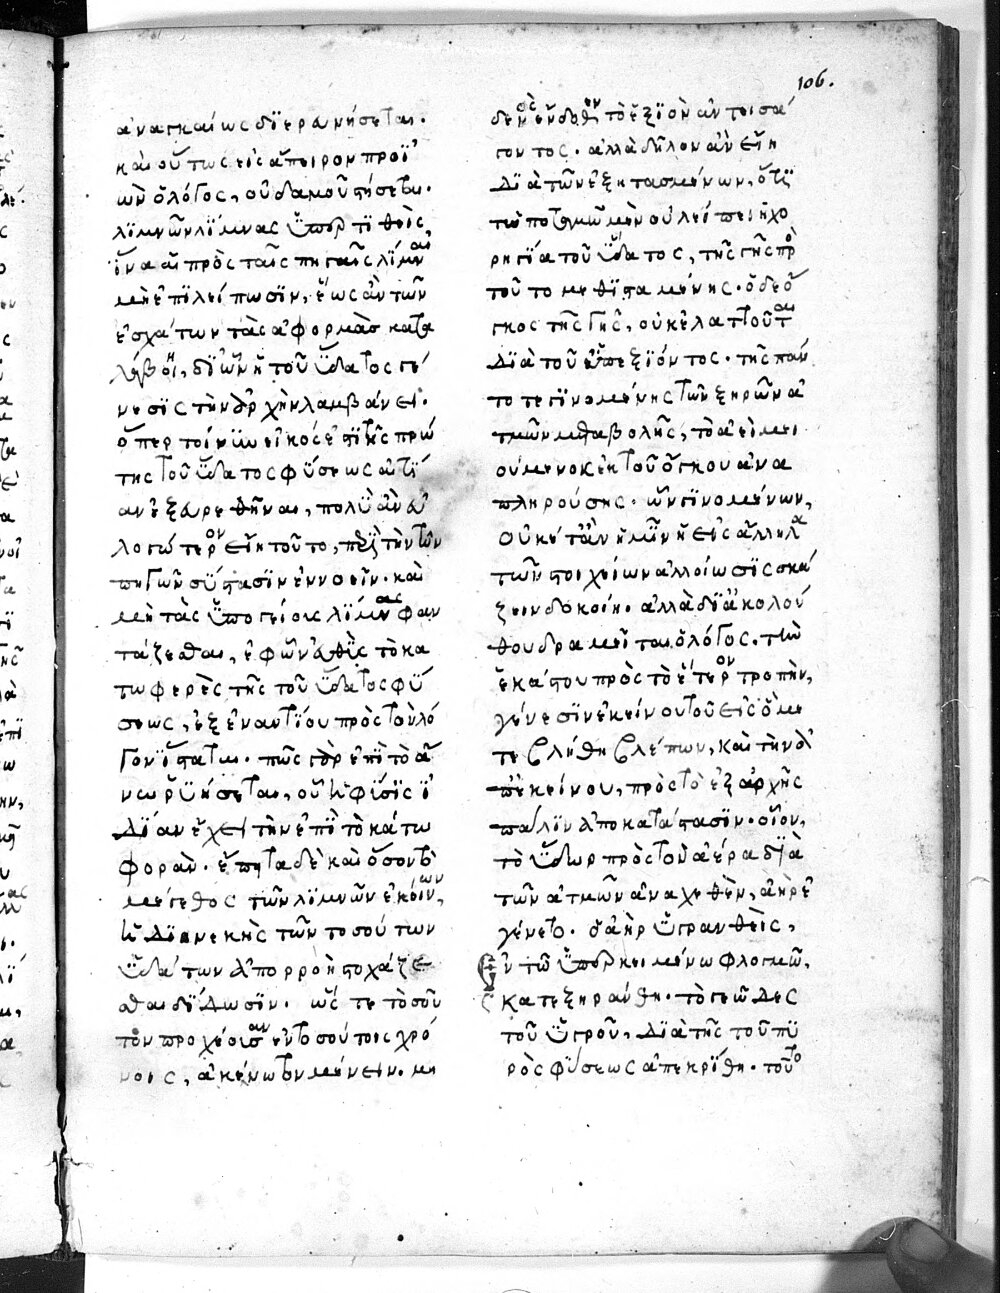 106.
ἀναγκαίως διερευνήσεται.
καὶ οὕτως εἰς ἄπειρον προϊ
ὼν ὁ λόγος, οὐδαμοῦ στήσεται.
λιμνῶν λίμνας ὑπερτιθεὶς,
ἵνα αἱ πρὸς ταῖς πηγαῖς λίμναι
μὴ ἐπιλείπωσιν, ἕως ἂν τῶν
ἐσχάτων τὰς ἀφορμὰς κατα
λάβοι, δι ὧν ἡ τοῦ ὕδατος γέ
νεσις τὴν ἀρχὴν λαμβάνει.
ὅπερ τοίνυν εἰκός ἐπὶ τῆς πρώ
της τοῦ ὕδατος φύσεως αἰτί
αν ἐξευρεθῆναι, πολὺ ἂν εὐ
λογώτερον εἴη τοῦτο, περὶ τὴν τῶν
πηγῶν σύστασιν ἐννοεῖν. καὶ
μὴ τὰς ὑπογείους λίμνας φαν
τάζεσθαι, ἐφ ὧν εὐθὺς τὸ κα
τωφερὲς τῆς τοῦ ὕδατος φύ
σεως, ἐξ ἐναντίου πρὸς τὸν λό
γον ἵσταται. πῶς γὰρ ἐπὶ τὸ ἄ
νω ῥυήσεται, οὗ ἡ φύσις ἰ
δίαν ἔχει τὴν ἐπὶ τὸ κάτω
φοράν. ἔπειτα δὲ καὶ ὅσον τὸ
μέγεθος τῶν λιμνῶν ἐκείνων,
ἡ διανεκὴς τῶν τοσούτων
ὑδάτων ἀπορροὴ στοχάζε
σθαι δίδωσιν. ὥς τε τὸ σοῦ
τον προχέουσαν ἐν τοσούτοις χρό
νοις, ἀκένωτον μένειν. μη
δενὸς ἔνδοθεν τὸ ἐξιὸν ἀντεισά
γοντος. ἀλλὰ δῆλον ἂν εἴη
διὰ τῶν ἐξητασμένων, ὅτι
τῶ ποταμῶ μὲν οὐ λείπει ἡ χο
ρηγία τοῦ ὕδατος, τῆς γῆς πρὸ
τοῦτο μεθισταμένης. ὁ δὲ ὄ
γκος τῆς γῆς, οὐκ ἐλαττοῦται
διὰ τοῦ ὑπεξιόντος. τῆς πάν
τοτε γινομένης τῶν ξηρῶν ἀ
τμῶν μεταβολῆς, τὸ ἀεὶ μει
ούμενον ἐκ τοῦ ὄγκου ἀνα
πληρούσης. ὧν γινομένων,
οὐκέτ ἂν ἡμῖν ἡ εἰς ἄλληλα
τῶν στοιχείων ἀλλοίωσις σκά
ζειν δοκοίη. ἀλλὰ δι ἀκολού
θου δραμεῖται ὁ λόγος. τῶ
ἑκάστου πρὸς τὸ ἕτερον τροπὴν,
γένεσιν ἐκείνου τοῦ εἰς ὃ με
τεβλήθη βλέπων, καὶ τὴν ἀ
π ἐκείνου, πρὸς τὸ ἐξ ἀρχῆς
πάλιν ἀποκατάστασιν. οἷον,
τὸ ὕδωρ πρὸς τὸν ἀέρα διὰ
τῶν ἀτμῶν ἀναχεθὲν, ἀὴρ ἐ
γένετο. ὁ ἀὴρ ὑγρανθεὶς,
ἐν τῶ ὑπερκειμένω φλογμῶ,
κατεξηράνθη. τὸ γεῶδες
τοῦ ὑγροῦ, διὰ τῆς τοῦ πυ
ρὸς φύσεως ἀπεκρίθη. τοῦτο